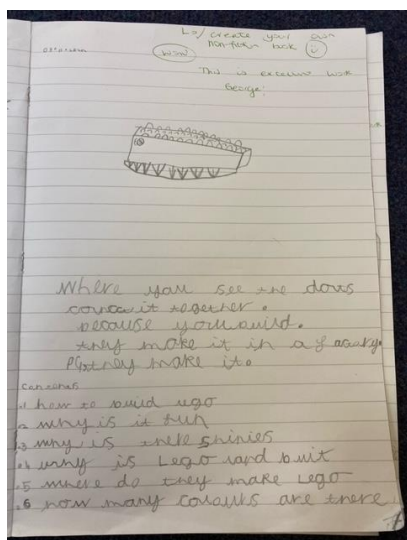 Lo/create your own
non-fiction book
This is excellent work
George!
Where you see the dots
it together.
because you build.
they make it in a
they make it.
.1 how to build
.2 why is it fun
.3 why is there shinies
.4 why is Lego land buit
.5 where do they make Lego
.6 how many colours are there